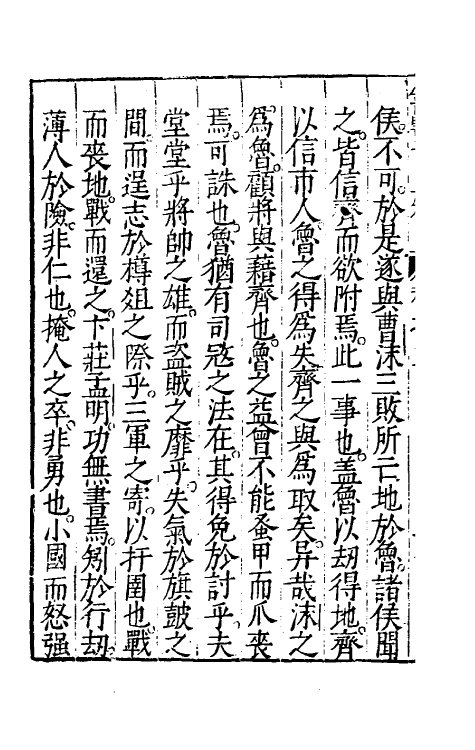 侯不可。於是遂與曹沫三敗所亡地於魯。諸侯聞
之。皆信齊而欲附焉。此一事也。盖魯以刼得地。齊
以信市人。魯之得爲失。齊之與爲取矣。异哉沫之
爲魯。顧將與藉齊也。魯之益曾不能蚤甲而爪喪
焉。可誅也。魯猶有司宼之法在。其得免於討乎。夫
堂堂乎將帥之雄。而盗賊之靡乎。失氣於旗皷之
間。而逞志於樽俎之際乎。三軍之寄。以扞圉也。戰
而喪地。戰而還之。卞莊孟明。功無書焉。矧於行刼。
薄人於險。非仁也。掩人之卒。非勇也。小國而怒强